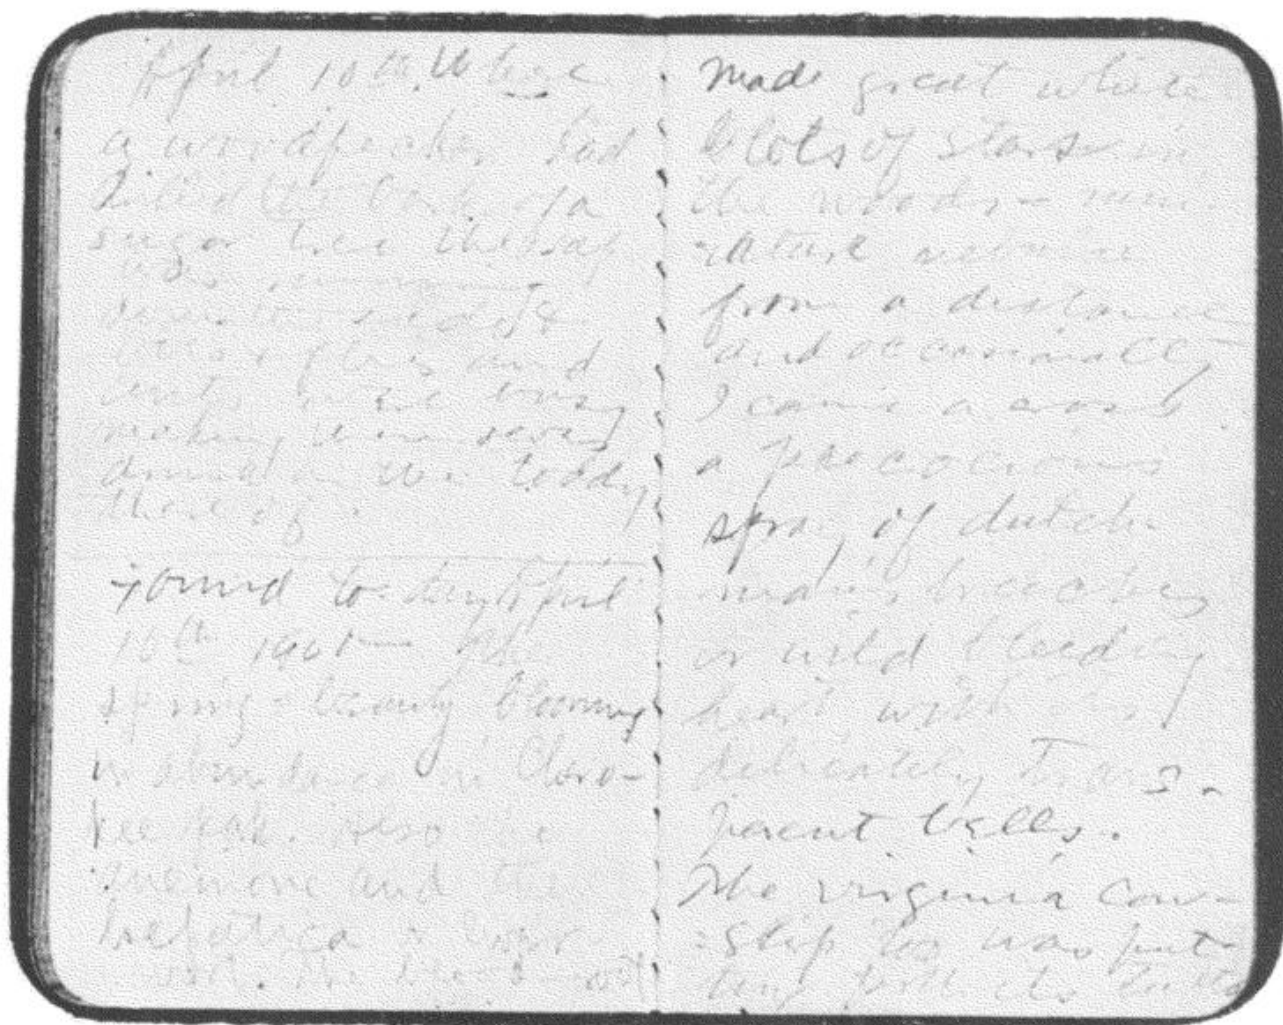 April 10th. Where
a woodpecker had
drilled the bark of a
sugar tree the sap
was running
flies and
ants were busy
making themselves
drunk on the toddy
thereof.
Found to-day April
16th 1901 — The
spring-beauty blooming
in abundance in Chero-
kee Park. Also the
anemone and the
hepatica
made great white
blots of stars in
the woods, – mini-
ature
from a distance
and occasionally
I came across
a precocious
spray of dutch-
man's breeches
or wild bleeding
heart with its
delicately trans-
parent bells.
The virginia cow-
slip too was put-
ting forth its